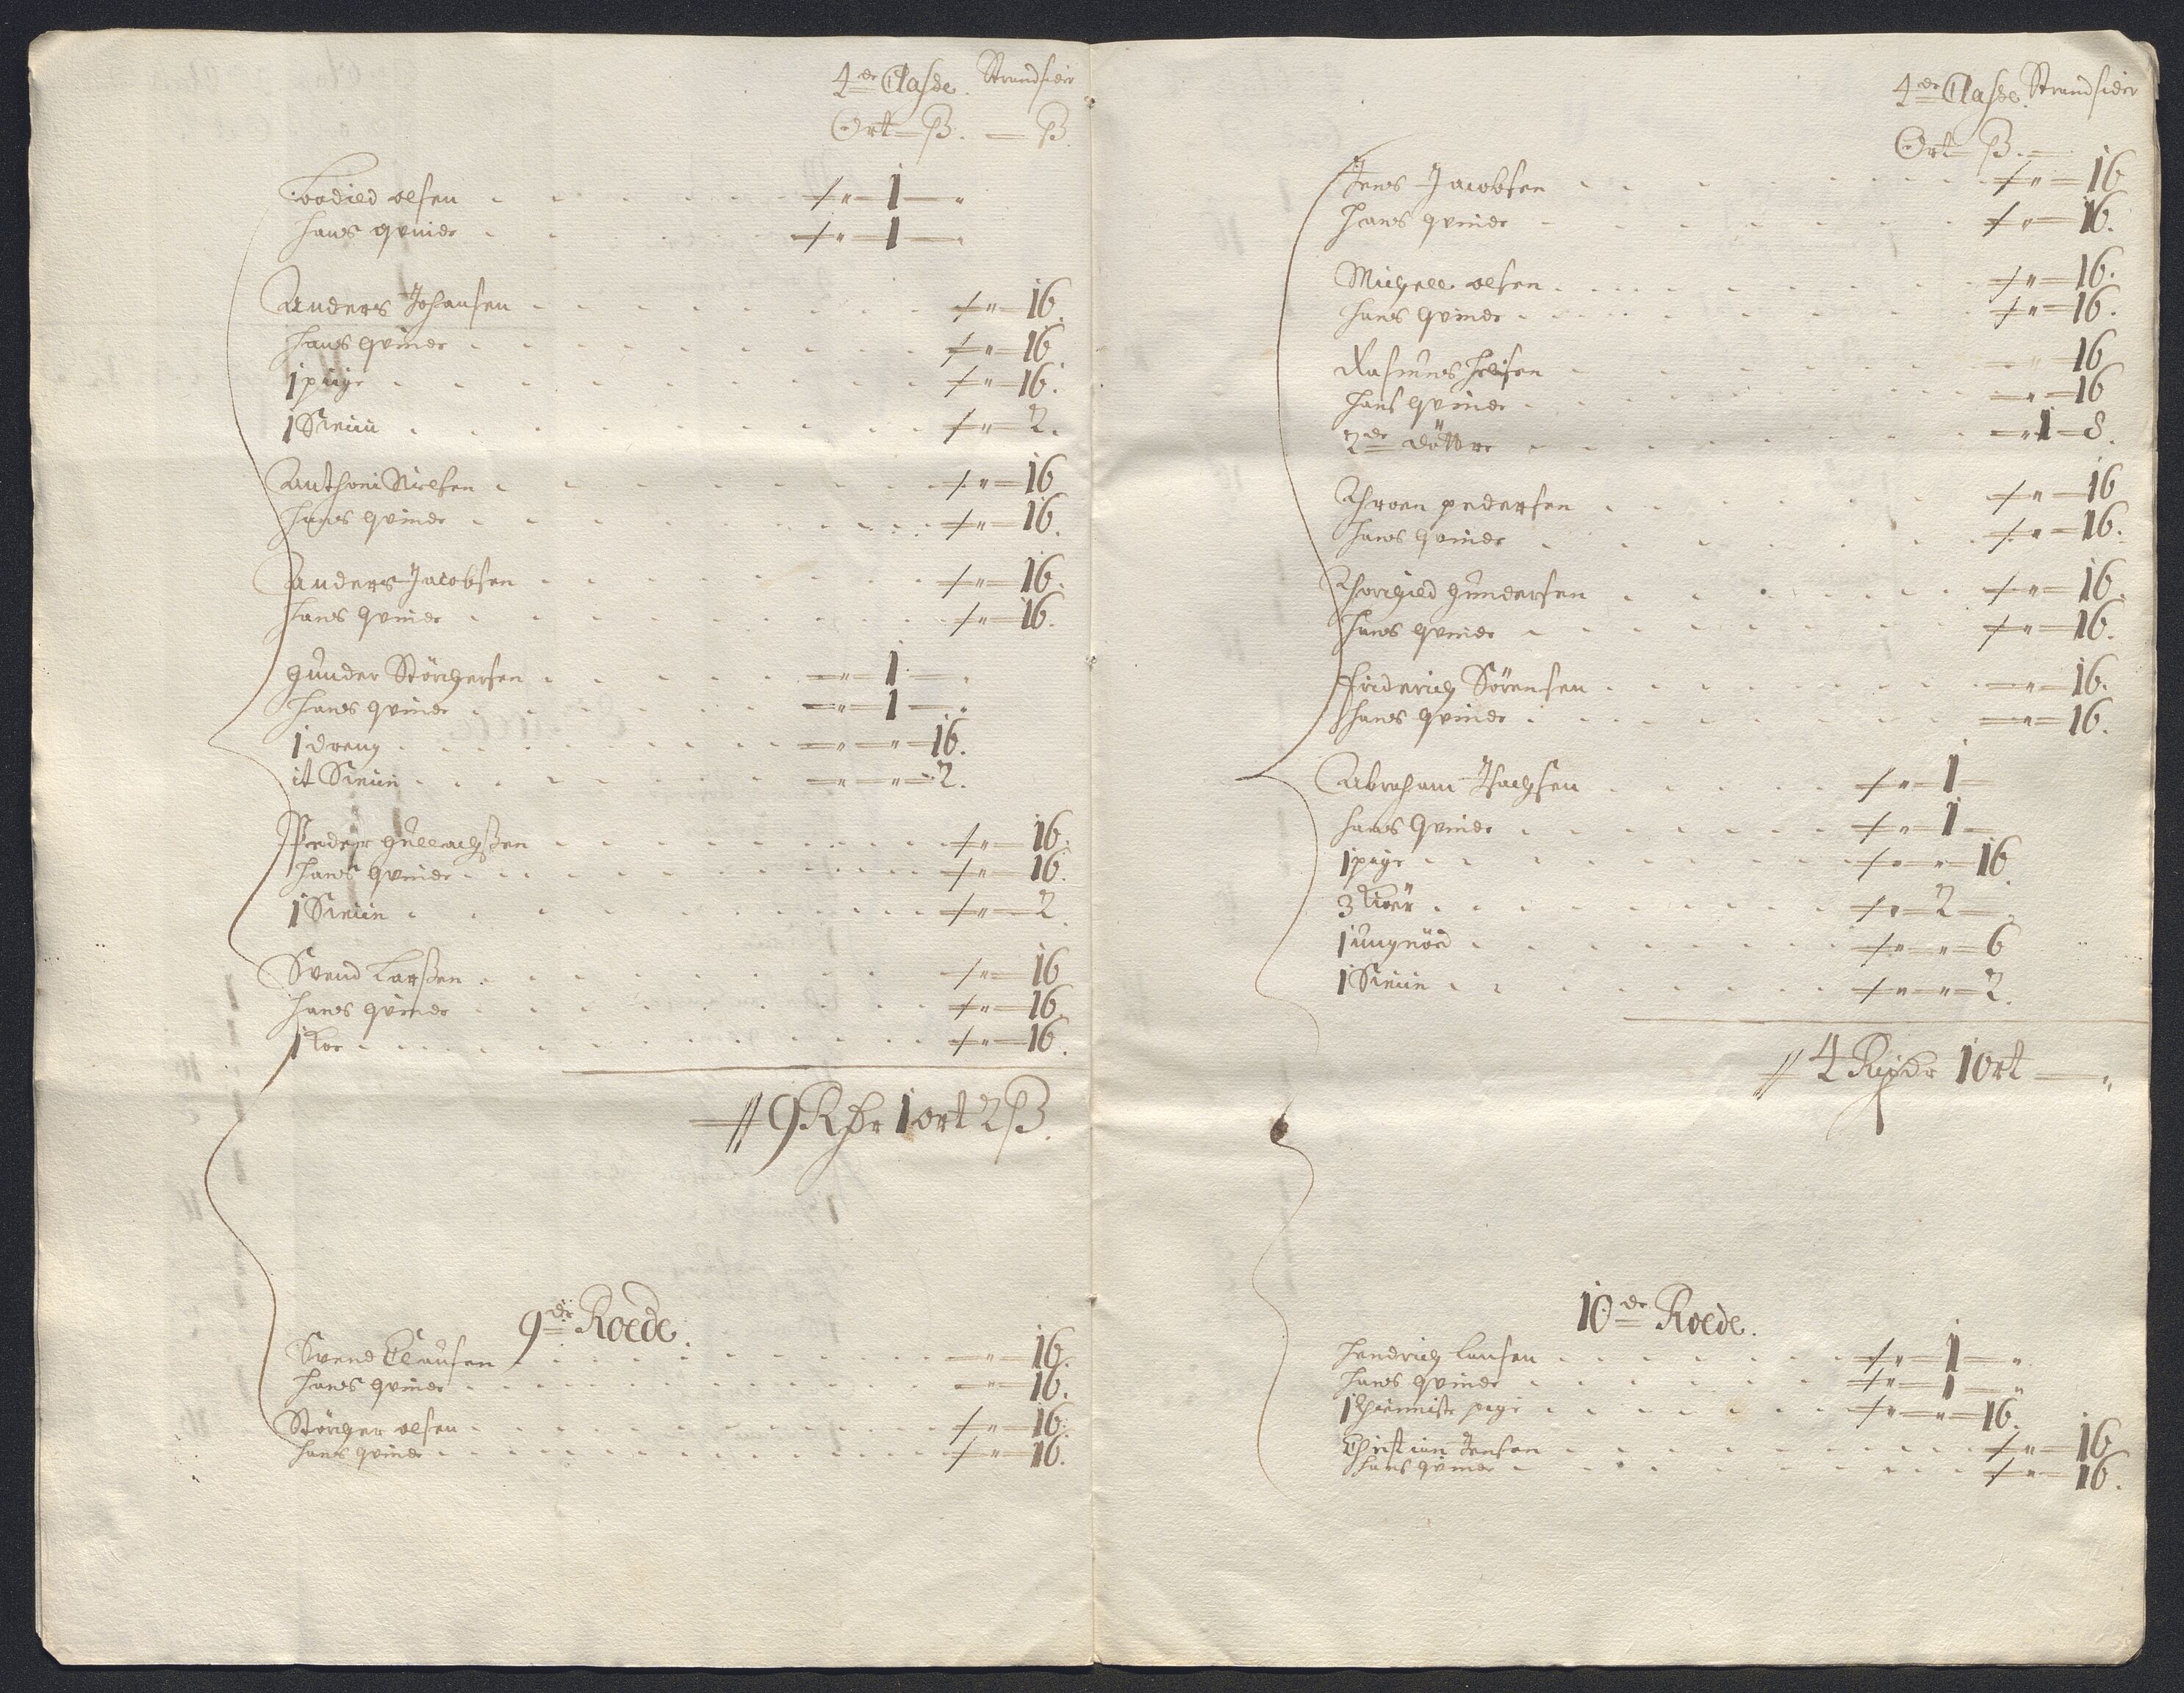 4de Classe. Strandsider
Ort ß. — ß
Bodild olsen 1
hans qvinde 1
Anders Johansen 16.
hans qvinde 16
1 pige 16.
1 Sviin 2.
Anthoni Nielsen 16
hans qvinde 16.
Anders Jacobsen 16.
hans qvinde 16.
gunder Störchersen 1
hans qvinde 1
1 dreng 16.
it Sviin 2.
Peder gullachßen 16.
hans qvinde 16.
1 Sviin 2
Svend Larßen 16
hans qvinde 16.
1 koe 16.
9 Rdr 1 ort 2 ß.
9de Roede.
Svend Clausen 16.
hans qvinde 16.
Störcher olsen 16.
hans qvinde 16.
4de Classe. Strandsider
Ort ß.
Jens Jacobsen 16
hans qvinde 16.
Michell olsen 16.
hans qvinde 16.
Rasmus 16
hans qvinde 16
2de döttre 1 8.
Throen pedersen 16
hans qvinde 16.
Thorchild gundersen 16.
hans qvinde 16.
Friderich Sörensen 16.
hans qvinde 16.
Abraham Isachsen 1
hans qvinde 1
1 pige 16.
3 kiör 2
1 ungnöd 6
1 Sviin 2.
4 Rixdr 1 ort
10de Roede.
hendrich Lausen 1
hans qvinde 1
1 thienniste pige 16.
Christian Jensen 16
hans qvinde 16.